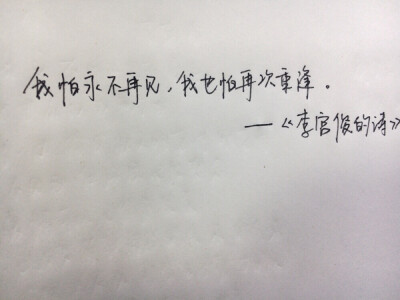 我怕永不再见，我也怕再次重逢。
—《李宫俊的诗》